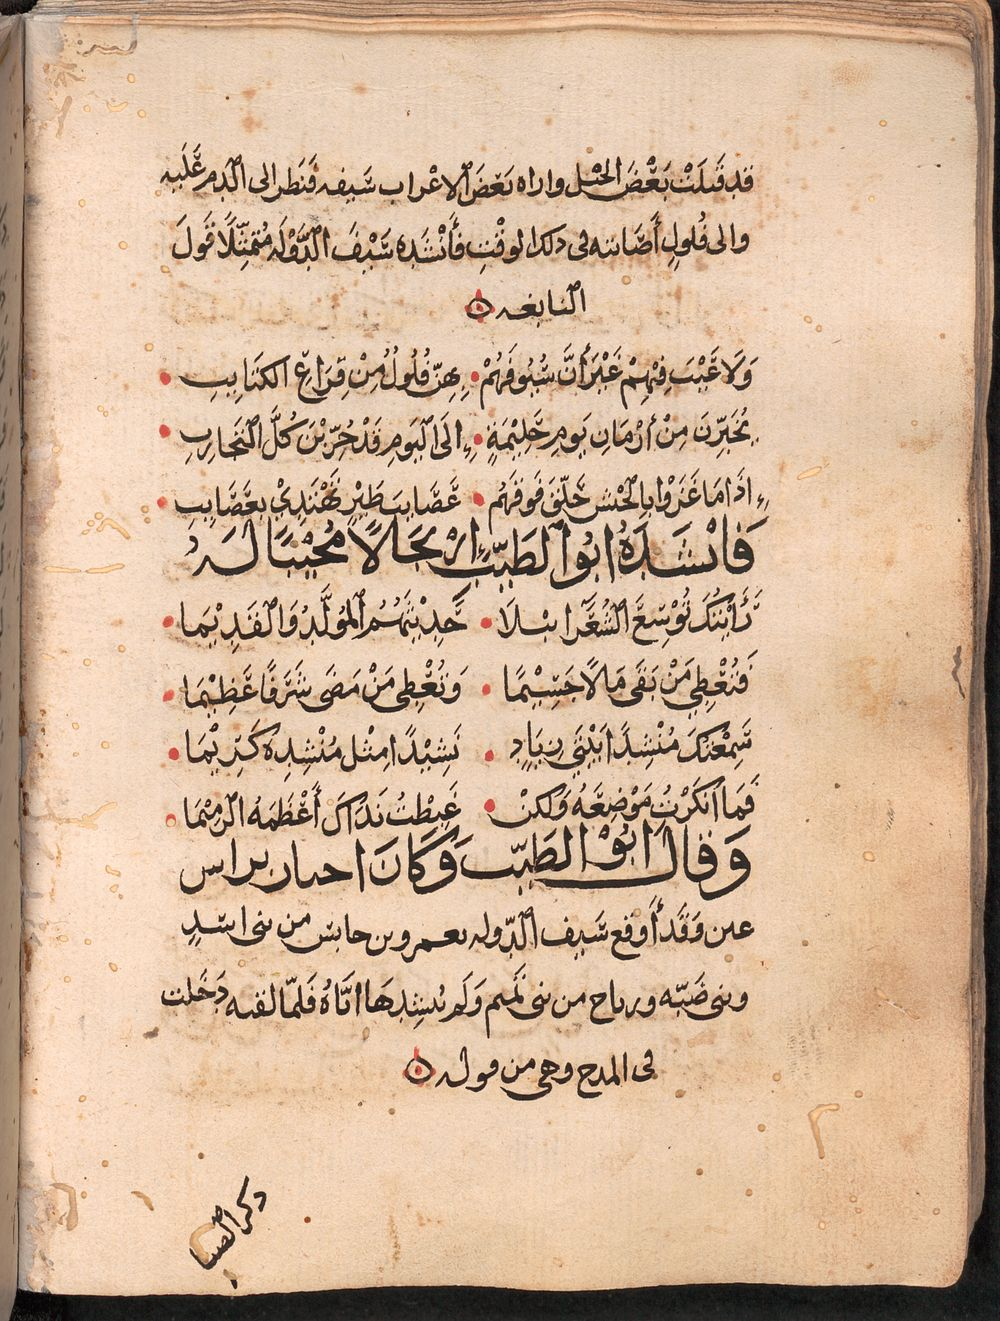 قد قَبِلَتْ بَعْضَ الخَيْل واراه بَعضَ الاعْراب سَيفه فَنَظر الى الدم عَلَيه
والى فُلُولٍ أَصَابته فى ذلك الوقْتِ فَأنْشَده سَيْفَ الدَّوْله مُتمثِّلًا قَولَ
النابغه ۞
وَلَا عَيْبَ فِيْهِمْ غَيْرَ أَنَّ سُيُوفَهُمْ • بِهِنّ فُلُولٌ مِنْ قِرَاعِ الكتَايِبِ •
يُخَبِّرنَ مِنْ أزْمَانِ يَومِ حَلِيْمَةٍ • إِلَى اليَومِ قَدْ جُرِّبْنَ كُلَّ التَجَارِبِ •
إِذَا مَا غَزَوْا بِالجَيْش حَلّقَ فَوقَهُم • عَصَايبَ طَيْرٍ تَهْتَدِيْ بِعَصَايبِ •
فَانْشَدَهُ ابُو الطَيِّب إِرْتجَالًا مُجيْبًا لَهُ
رَأيْتُكَ تُوْسِعُ الشُعَرَا نيلَا • حَدِيْثَهُمُ المُوَلَّدَ وَالقَدِيْمَا •
فَتُعْطِي مَنْ بَقَى مَالًا جَسِيْمًا • وَتُعْطِي مَنْ مَضَى شَرَفًا عَظِيْمَا •
سَمِعْتُكَ مُنْشِدًا بَيْتَيْ زِيَادٍ • نَشِيْدًا مِثْل مُنْشِدِه كَرِيْمَا •
فَمَا انكَرْتُ مَوْضِعَهُ وَلَكنْ • غَبَطْتُ بذَاكَ أَعْظمَهُ الرميْمَا •
وَقَالَ ابُوْ الطَيِّب وَكَانَ اجتاز براس
عين وَقَد أَوقع سَيف الدّوله بعمرو بن حابس من بنى اسَدٍ
وبنى ضَبّه ورياح من بنى تَميم وَلَم يُنشِدهَا ايَّاهُ فَلمّا لقيه دَخَلت
فى المدح وهى من قوله ۞
ذكر الصبا